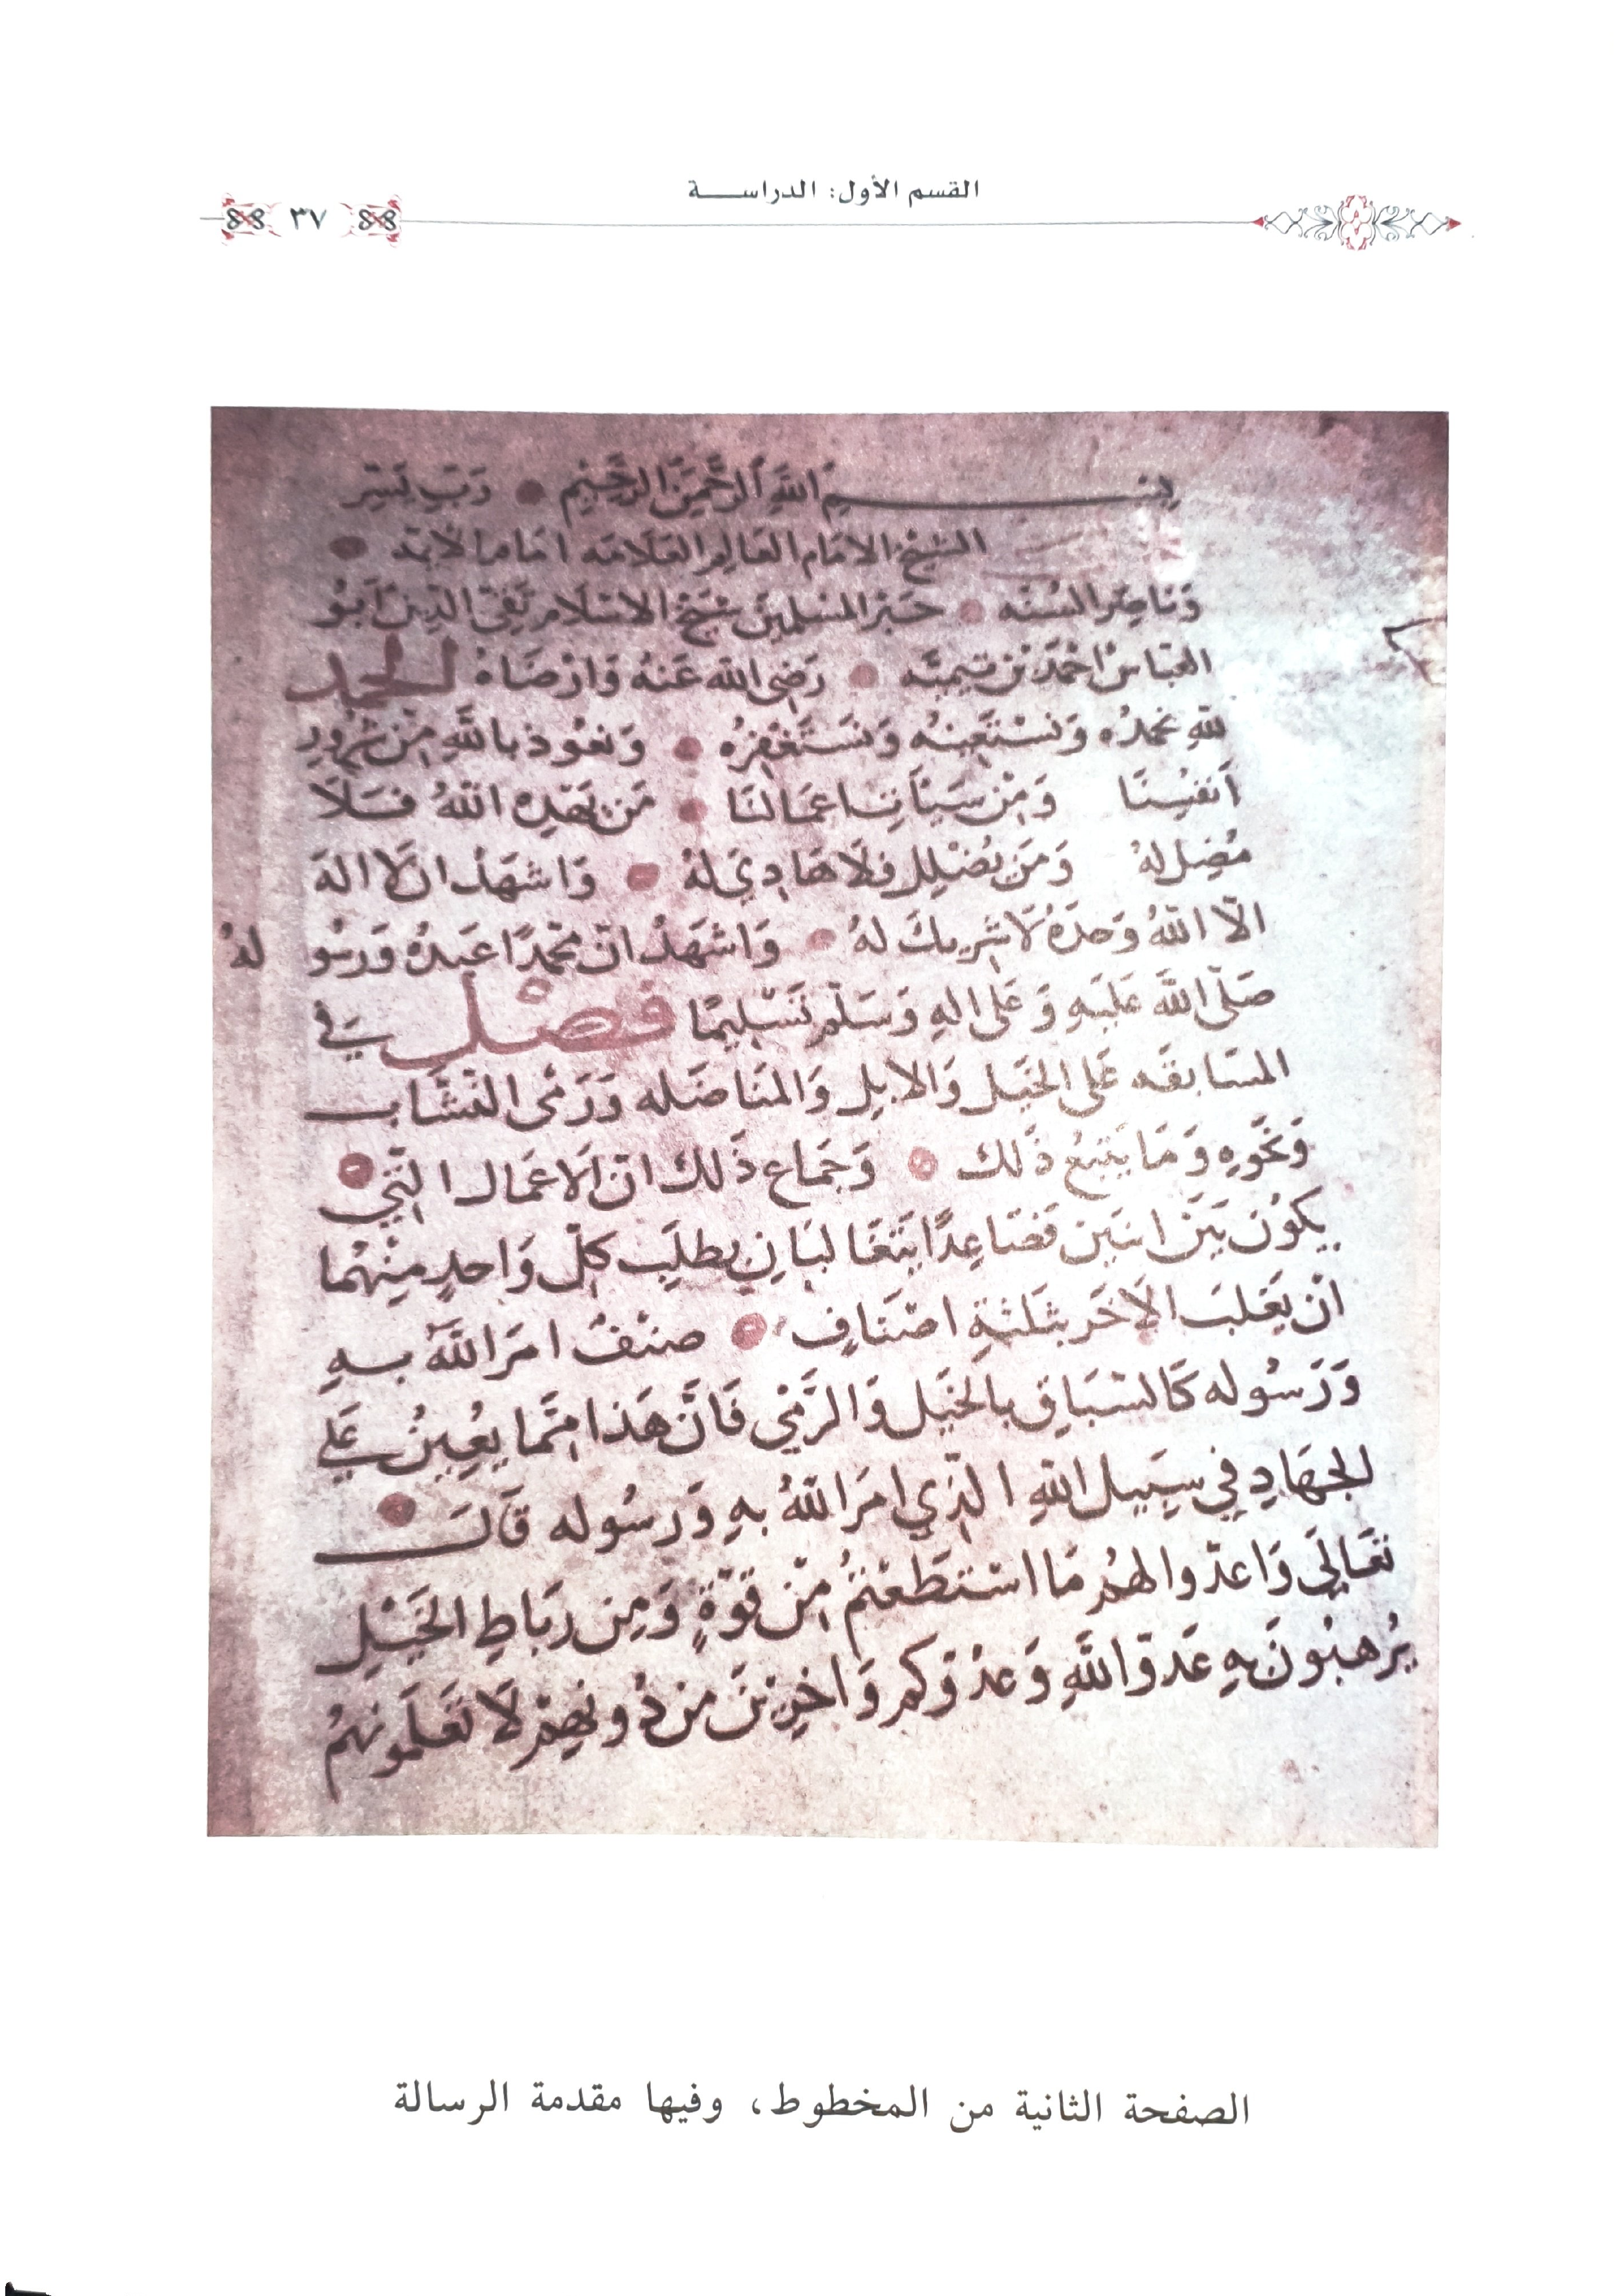 القسم الأول: الدراســـة
٣٧
بِســـــمِ اللهِ الرَّحْمَنِ الرَّحِيمِ رَبِّ يَسِّر
الشَّيْخُ الامَام العَالِم العَلامَه امَام الايمه
وَنَاصِر السُنَه حَبْرُ المسْلِمِين شَيْخ الاسْلَام تَقِيّ الدّين ابُو
العَبّاس احْمَد بْن تيميَّه رَضِي الله عَنهُ وَارْضَاهُ الحمد
للهِ نحمدُه وَنسْتَعِينهُ وَنسَتَغْفِرُه وَنعُوذ بالله مِنْ شرُورِ
أنفسِنَا وَمِنْ سَيّأتِ اعمَالنَا مَن يَهْدِه اللهُ فَلَا
مُضِل لهُ وَمَن يُضْلِل فلَا هَادِيَ لهُ وَاشهَدُ ان لَا اله
الّا اللهُ وَحدَهُ لَا شرِيكَ لهُ وَاشهَدُ انّ محمّدًا عَبدهُ وَرسُو لهُ
صَلّى اللهَ عَليهِ وَ عَلى الهِ وَسَلّم تَسْلِيمًا فصْل في
المسَابقَه عَلى الخيَل وَالابِل وَالمنَاضَله وَرَمْى النشّاب
وَنحَوِه وَ مَا يَتبَعُ ذَلك وَجمَاع ذَلك انّ الَاعمَال الّتي
يكوُن بَيَن اثنَين فصَاعِدًا يَتغَالبَانِ يطلَب كلّ وَاحدٍ مِنْهُمَا
انْ يَغلبَ الاخَر ثلثةِ اصْنَافٍ صنْفٌ امَر اللهَ بهِ
وَرَسُوله كَالسّبَاقِ بالخَيْل وَالرَّمْيِ فَانّ هَذا مِمَّا يعُينُ عَلى
الجهَادِ في سَبيل اللهِ الّذِي امَر اللهُ بهِ وَرَسُوله قَالَ
تعَالى وَاعدّوا لهُم مَا اسْتطَعْتمُ مِنْ قوّةٍ وَمِن ربَاطِ الخَيْلِ
يُرْهبُونَ بهِ عَدوّ اللهِ وَعدُوّكم وَاخِرينَ مِن دُونِهمْ لَا تَعْلَمُونَهُمُ
الصفحة الثانية من المخطوط، وفيها مقدمة الرسالة